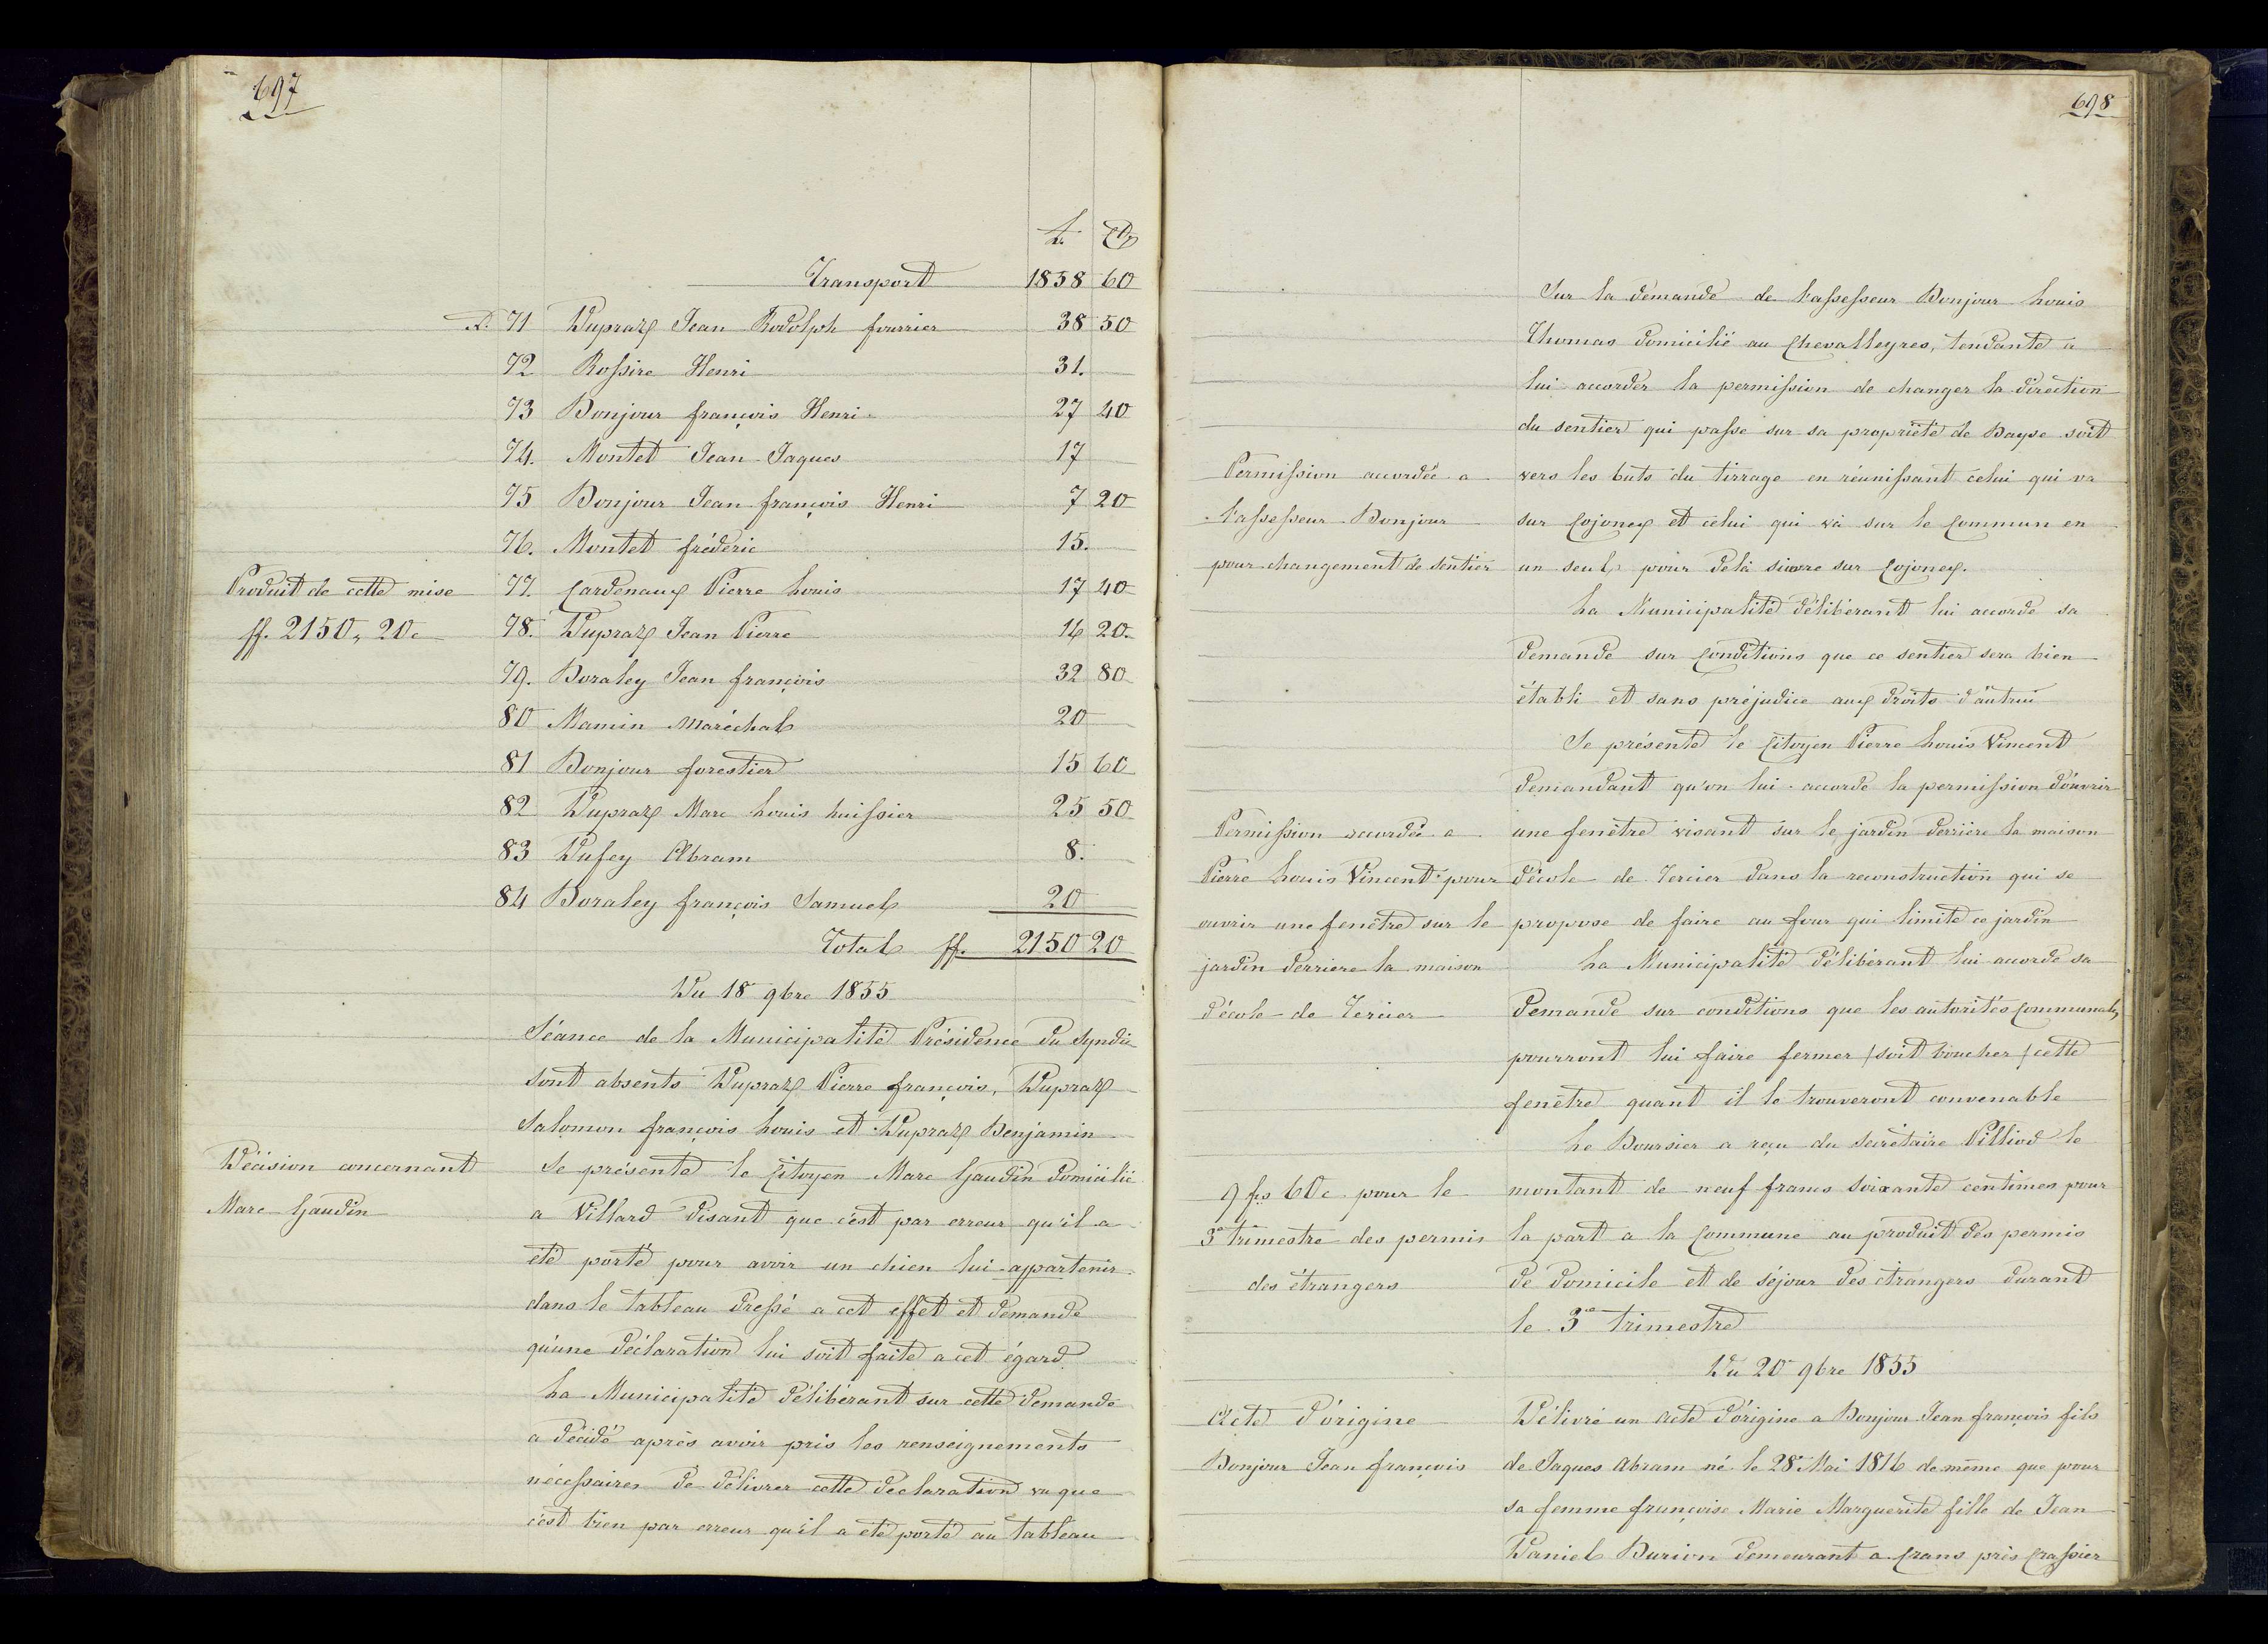 697
fr. Cs
Transport 1858 60
N. 71 Dupraz Jean Rodolph fourrier 38 50
72 Rossire Henri 31.
73 Bonjour françois Henri 27 40
74. Montet Jean Jaques 17
75 Bonjour Jean françois Henri 7 20
76. Montet fréderic 15.
77. Cardenaux Pierre Louis 17 40
78. Dupraz Jean Pierre 16 20
79. Boraley Jean françois 32 80
80 Mamin Maréchal 20
81 Bonjour forestier 15 60
82 Dupraz Marc Louis huissier 25 50
83 Dufey Abram 8.
84 Boraley françois Samuel 20
Total ff. 2150 20
Produit de cette mise
ff. 2150, 20c
Du 18 9bre 1855
Séance de la Municipalité Présidence du Syndic
sont absents Dupraz Pierre françois, Dupraz
Salomon françois Louis et Dupraz Benjamin
Décision concernant
Marc Gaudin
Se présente le Citoyen Marc Gaudin domicilié
a Villard disant que c'est par erreur qu'il a
été porté pour avoir un chien lui appartenir
dans le tableau dressé a cet effet et demande
qu'une déclaration lui soit faite a cet égard
La Municipalité délibérant sur cette demande
a décidé après avoir pris les renseignements
nécessaires de délivrer cette déclaration vu que
c'est bien par erreur qu'il a été porté au tableau
698
Sur la demande de l'assesseur Bonjour Louis
Thomas domicilié au Chevalleyres, tendante a
lui accorder la permission de changer la direction
du sentier qui passe sur sa propriété de Bayse soit
vers les buts du tirrage en réunissant celui qui va
sur Cojonex et celui qui va sur le Commun en
un seul, pour delà suivre sur Cojonex.
Permission accordée a
l'assesseur Bonjour
pour changement de sentier
La Municipalité délibérant lui accorde sa
demande sur Conditions que ce sentier sera bien
établi et sans préjudice aux droits d'autrui
Se présente le Citoyen Pierre Louis Vincent
demandant qu'on lui accorde la permission d'ouvrir
une fenêtre visant sur le jardin derrière la maison
d'école de Tercier dans la reconstruction qui se
propose de faire au four qui limite ce jardin
Permission accordée a
Pierre Louis Vincent pour
ouvrir une fenêtre sur le
jardin derriere la maison
d'école de Tercier
La Municipalité délibérant lui accorde sa
demande sur conditions que les autorités Communales
pourront lui faire fermer /soit boucher/ cette
fenêtre quant il le trouveront convenable
Le Boursier a reçu du Secrétaire Pilliod le
montant de neuf francs soixante centimes pour
la part a la Commune au produit des permis
de domicile et de séjour des étrangers durant
le 3e trimestre
9 frs 60c pour le
3e trimestre des permis
des étrangers
Du 20 9bre 1855
Acte d'origine
Bonjour Jean françois
Délivré un acte d'origine a Bonjour Jean françois fils
de Jaques Abram né le 28 Mai 1816 de même que pour
sa femme françoise Marie Marguerite fille de Jean
Daniel Burion demeurant a Crans près Crassier